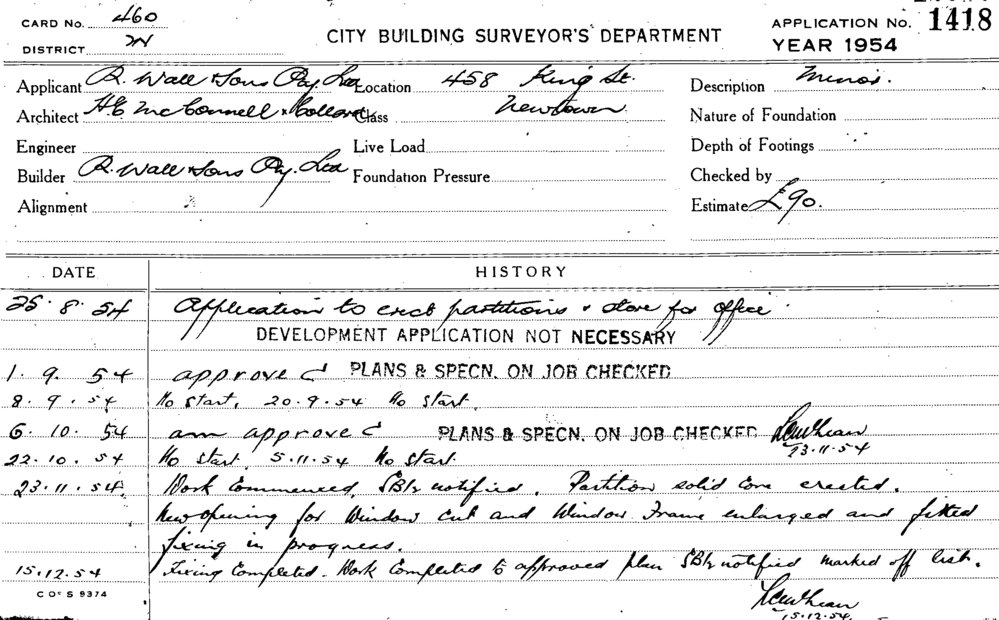 CARD No. 460
DISTRICT W
CITY BUILDING SURVEYOR'S DEPARTMENT
APPLICATION No. 1418
YEAR 1954
Applicant R. Wall & Sons Pty. Ltd Location 458 King St. Description Minor.
Architect H.E. McConnell & Class Newtown Nature of Foundation
Engineer Live Load Depth of Footings
Builder R. Wall & Sons Pty. Ltd Foundation Pressure Checked by
Alignment Estimate £90.
DATE HISTORY
25.8.54 Application to erect partitions & store for office
DEVELOPMENT APPLICATION NOT NECESSARY
1.9.54 approved PLANS & SPECN. ON JOB CHECKED
8.9.54 No start, 20.9.54 No start.
6.10.54 am approved PLANS & SPECN. ON JOB CHECKED
23.11.54
22.10.54 No start, 5.11.54 No start.
23.11.54. Work Commenced, notified. Partition solid core erected.
New opening for Window cut and Window Frame enlarged and fitted
fixing in progress.
15.12.54 Fixing Completed. Work Completed to approved plan notified marked off list.
C OF S 9374
15.12.54